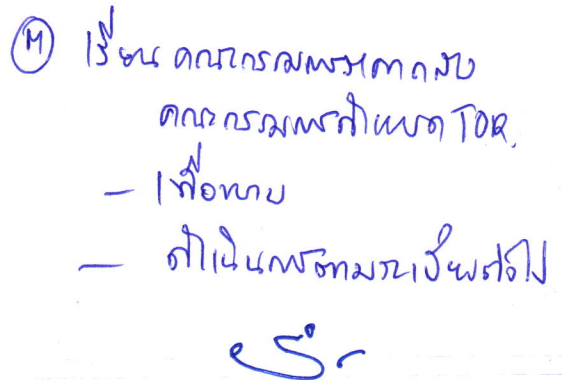 M เรียน คณะกรรมการราคากลาง
คณะกรรมการกำหนด TOR.
- เพื่อทราบ
- ดำเนินการตามระเบียบต่อไป